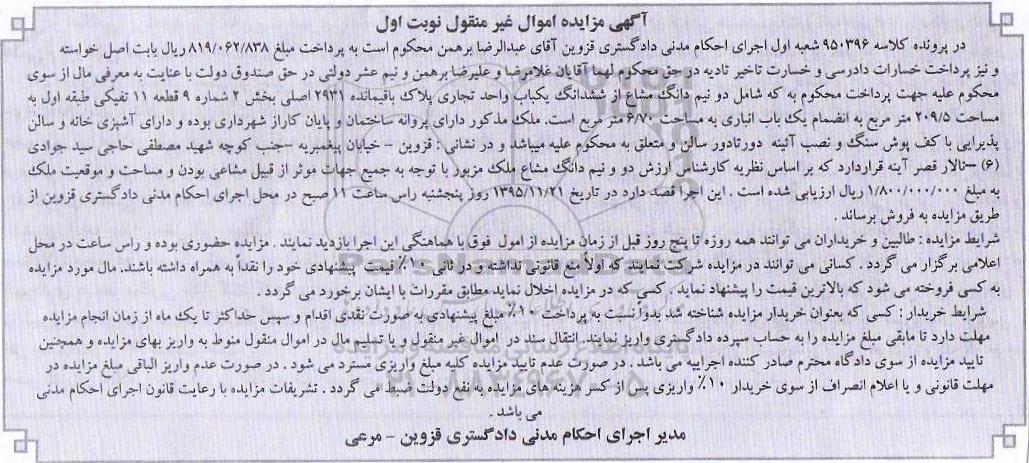 آگهی مزایده اموال غیر منقول نوبت اول
در پرونده کلاسه ۹۵۰۳۹۶ شعبه اول اجرای احکام مدنی دادگستری قزوین آقای عبدالرضا برهمن محکوم است به پرداخت مبلغ ۸۱۹/۰۶۲/۸۳۸ ریال بابت اصل خواسته
و نیز پرداخت خسارات دادرسی و خسارت تاخیر تادیه در حق محکوم لهما آقایان غلامرضا و علیرضا برهمن و نیم عشر دولتی در حق صندوق دولت با عنایت به معرفی مال از سوی
محکوم علیه جهت پرداخت محکوم به که شامل دو نیم دانگ مشاع از ششدانگ یکباب واحد تجاری پلاک باقیمانده ۲۹۳۱ اصلی بخش ۲ شماره ۹ قطعه ۱۱ تفیکی طبقه اول به
مساحت ۲۰۹/۵ متر مربع به انضمام یک باب انباری به مساحت ۶/۷۰ متر مربع است. ملک مذکور دارای پروانه ساختمان و پایان کاراز شهرداری بوده و دارای آشپزی خانه و سالن
پذیرایی با کف پوش سنگ و نصب آئینه دورتادور سالن و متعلق به محکوم علیه میباشد و در نشانی : قزوین - خیابان پیغمبریه -جنب کوچه شهید مصطفی حاجی سید جوادی
(۶) -تالار قصر آینه قراردارد که بر اساس نظریه کارشناس ارزش دو و نیم دانگ مشاع ملک مزبور با توجه به جمیع جهات موثر از قبیل مشاعی بودن و مساحت و موقعیت ملک
به مبلغ ۱/۸۰۰/۰۰۰/۰۰۰ ریال ارزیابی شده است . این اجرا قصد دارد در تاریخ ۱۳۹۵/۱۱/۲۱ روز پنجشنبه راس ساعت ۱۱ صبح در محل اجرای احکام مدنی دادگستری قزوین از
طریق مزایده به فروش برساند .
شرایط مزایده : طالبین و خریداران می توانند همه روزه تا پنج روز قبل از زمان مزایده از امول فوق با هماهنگی این اجرا بازدید نمایند . مزایده حضوری بوده و راس ساعت در محل
اعلامی برگزار می گردد . کسانی می توانند در مزایده شرکت نمایند که اولا منع قانونی نداشته و در ثانی ۱۰٪ قیمت پیشنهادی خود را نقداً به همراه داشته باشند. مال مورد مزایده
به کسی فروخته می شود که بالاترین قیمت را پیشنهاد نماید . کسی که در مزایده اخلال نماید مطابق مقررات با ایشان برخورد می گردد .
شرایط خریدار : کسی که بعنوان خریدار مزایده شناخته شد بدوا نسبت به پرداخت ۱۰٪ مبلغ پیشنهادی به صورت نقدی اقدام و سپس حداکثر تا یک ماه از زمان انجام مزایده
مهلت دارد تا مابقی مبلغ مزایده را به حساب سپرده دادگستری واریز نمایند. انتقال سند در اموال غیر منقول و یا تسلیم مال در اموال منقول منوط به واریز بهای مزایده و همچنین
تایید مزایده از سوی دادگاه محترم صادر کننده اجراییه می باشد . در صورت عدم تایید مزایده کلیه مبلغ واریزی مسترد می شود . در صورت عدم واریز الباقی مبلغ مزایده در
مهلت قانونی و یا اعلام انصراف از سوی خریدار ۱۰٪ واریزی پس از کسر هزینه های مزایده به نفع دولت ضبط می گردد . تشریفات مزایده با رعایت قانون اجرای احکام مدنی
می باشد .
مدیر اجرای احکام مدنی دادگستری قزوین - مرعی